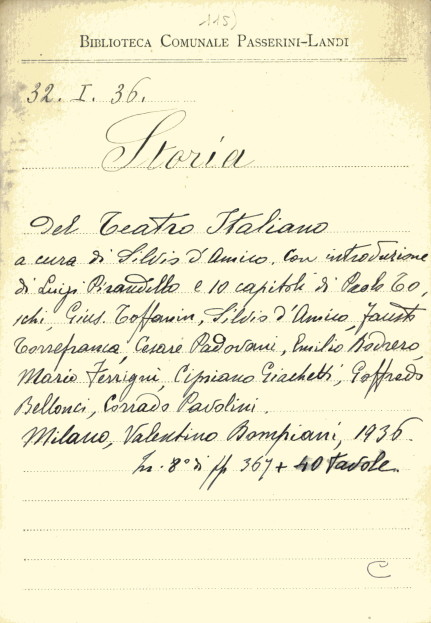 115)
BIBLIOTECA COMUNALE PASSERINI-LANDI
32. I. 36.
Storia
Del Teatro Italiano
a cura di Silvio d'Amico. Con introduzione
di Luigi Pirandello e 10 capitoli di Paolo To,
schi, Gius. Toffanin, Silvio d'Amico, Fausto
Torrefranca, Cesare Padovani, Emilio Bodrero,
Mario Ferrigni, Cipriano Giachetti, Goffredo
Bellonci, Corrado Pavolini.
Milano, Valentino Bompiani, 1936.
In. 8° di pp 367 + 40 tavole.
C